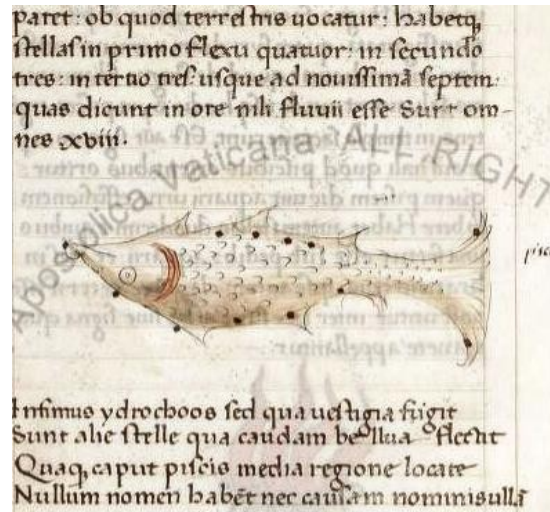 paret: ob quod terrestris uocatur: habetq;
stellas in primo flexu quatuor: in secundo
tres: in tertio tres: usque ad nouissimã septem:
quas dicunt in ore nili fluuii esse Sunt om-
nes xviii.
Apostolica Vaticana ALL RIGHT
Infimus ydrochoos sed qua uestigia figit
Sunt alie stelle qua caudam bellua flectit
Quaq; caput piscis media regione locate
Nullum nomen habẽt nec causam nominis ullã